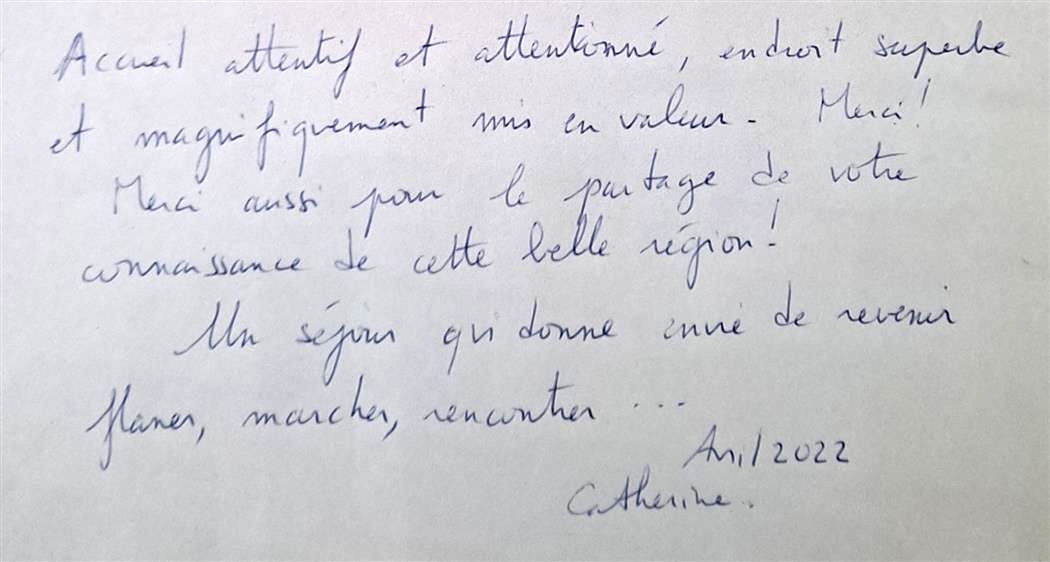 Accueil attentif et attentionné, endroit superbe
et magnifiquement mis en valeur. Merci!
Merci aussi pour le partage de votre
connaissance de cette belle région!
Un séjour qui donne envie de revenir
flaner, marcher, rencontrer ...
Avril 2022
Catherine.